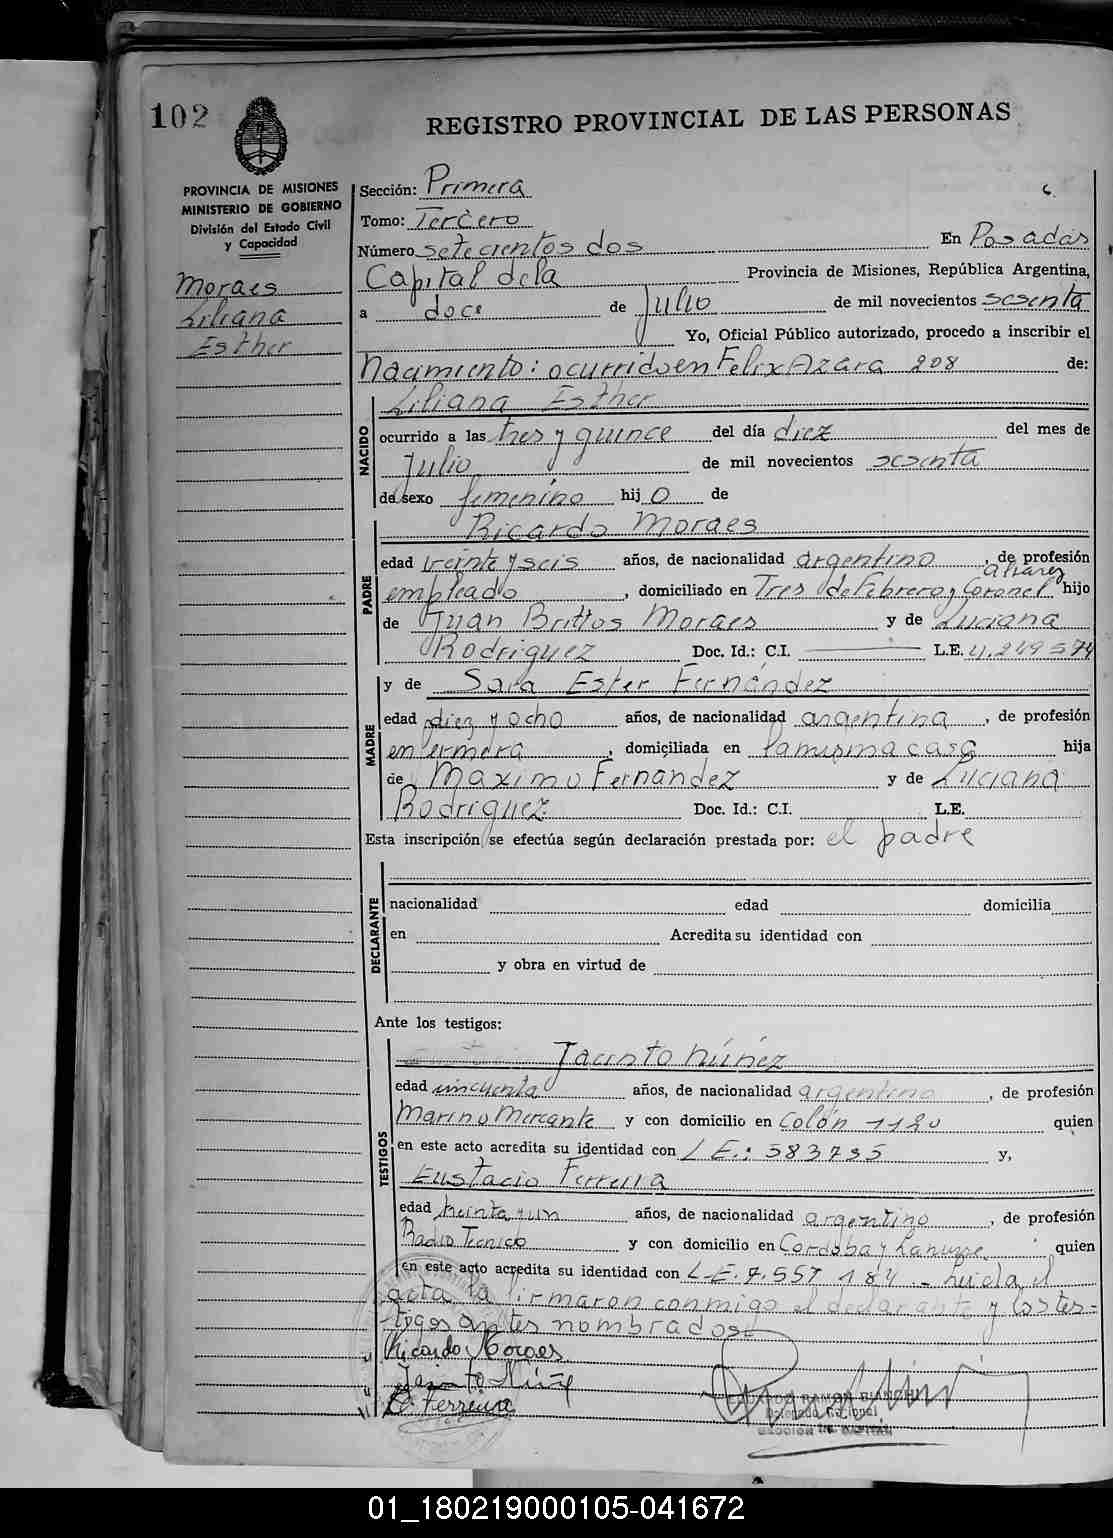 102
REGISTRO PROVINCIAL DE LAS PERSONAS
PROVINCIA DE MISIONES
MINISTERIO DE GOBIERNO
División del Estado Civil
y Capacidad
Moraes
Liliana
Esther
Sección: Primera
Tomo: Tercero
Número setecientos dos En Posadas
Capital dela Provincia de Misiones, República Argentina,
a doce de Julio de mil novecientos sesenta
Yo, Oficial Público autorizado, procedo a inscribir el
Nacimiento: ocurrido en Felix Azara 208 de:
NACIDO
Liliana Esther
ocurrido a las tres y quince del día diez del mes de
Julio de mil novecientos sesenta
de sexo femenino hij o de
PADRE
Ricardo Moraes
edad treinta y seis años, de nacionalidad argentino, de profesión
empleado, domiciliado en Tres de Febrero y Coronel Alvarez hijo
de Juan Brittos Moraes y de Luciana
Rodriguez Doc. Id.: C.I. L.E. 4.249.574
MADRE
y de Sara Ester Fernández
edad diez y ocho años, de nacionalidad argentina, de profesión
enfermera, domiciliada en la misma casa hija
de Maximo Fernandez y de Luciana
Rodriguez. Doc. Id.: C.I. L.E.
Esta inscripción se efectúa según declaración prestada por: el padre
DECLARANTE
nacionalidad edad domicilia
en Acredita su identidad con
y obra en virtud de
Ante los testigos:
TESTIGOS
Jacinto Núñez
edad cincuenta años, de nacionalidad argentino, de profesión
Marino Mercante y con domicilio en Colón 1120 quien
en este acto acredita su identidad con L E.: 583735 y,
Eustacio Ferreira
edad treinta y un años, de nacionalidad argentino, de profesión
Radio Tecnico y con domicilio en Cordoba y Lanusse quien
en este acto acredita su identidad con L.E. 7.557 184 - Leida el
acta la firmaron conmigo el declarante y los tes-
tigos antes nombrados.-
Ricardo Moraes
Jacinto Núñez
E. Ferreira
EDUARDO RAMON BIANCHI
01_180219000105-041672